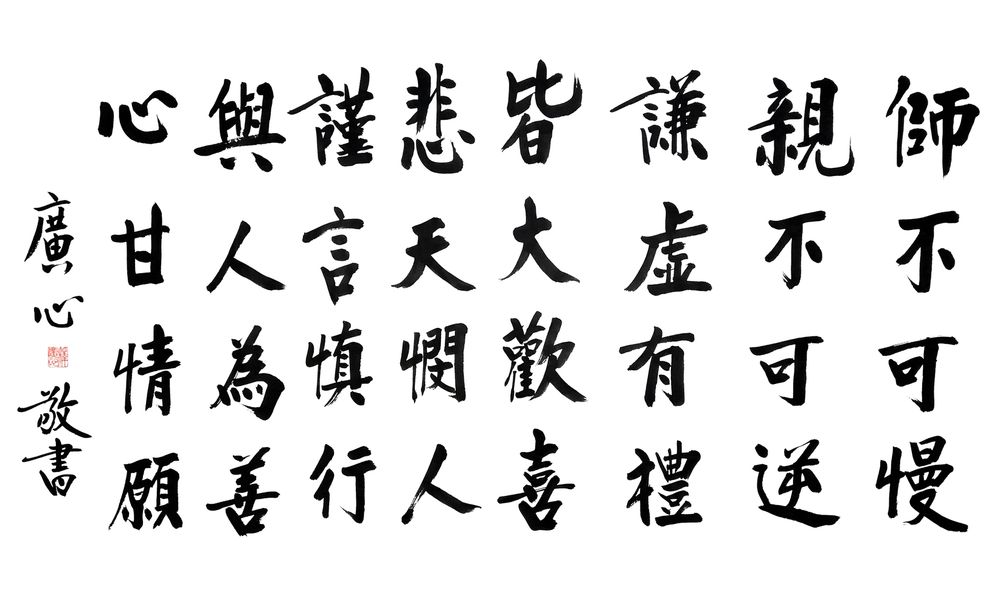 師不可慢
親不可逆
謙虛有禮
皆大歡喜
悲天憫人
謹言慎行
與人為善
心甘情願
廣心敬書